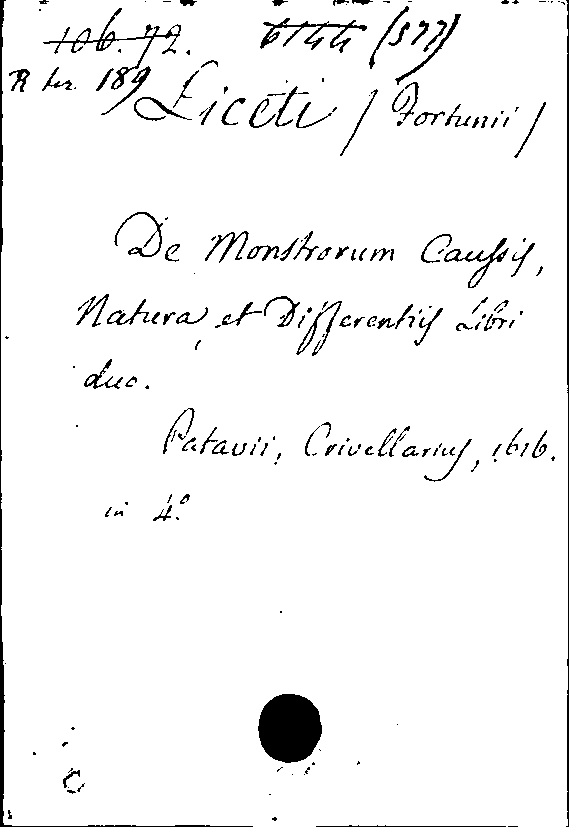 106.72. 6144 (577)
R ter. 189
Liceti / Fortunii /
De Monstrorum Caussis,
Natura, et Differentiis Libri
duo.
Patavii, Crivellarius, 1616.
in 4.º